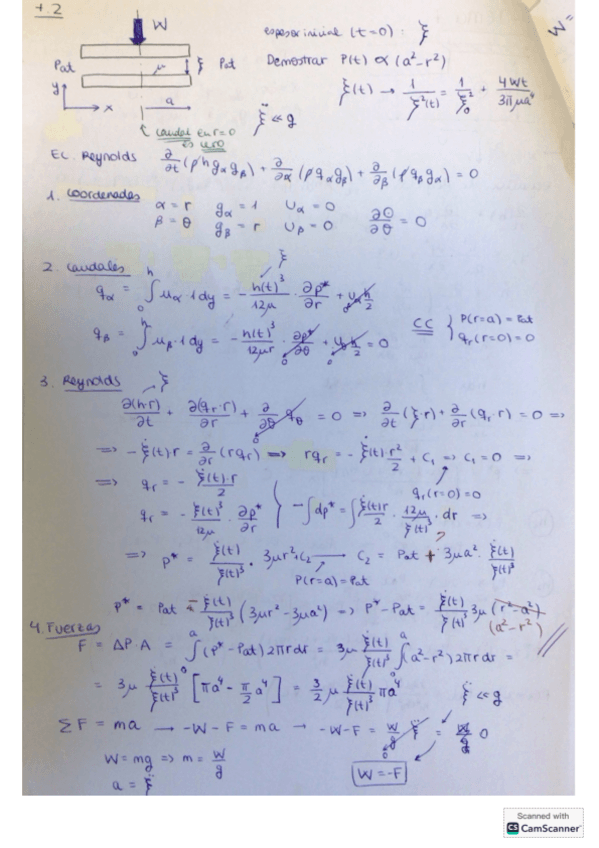 4.2
W
Pat μ ξ Pat
y x a
caudal en r=0
es nulo
espesor inicial (t=0): ξ
Demostrar P(t) ∝ (a²-r²)
ξ(t) → 1/ξ²(t) = 1/ξ₀² + 4Wt/3πμa⁴
ξ̈ << g
W"
EC. Reynolds ∂/∂t (ρ h gα gβ) + ∂/∂α (ρ qα gβ) + ∂/∂β (ρ qβ gα) = 0
1. Coordenadas
α = r gα = 1 Uα = 0
β = θ gβ = r Uβ = 0 ∂()/∂θ = 0
2. Caudales
qα = ∫₀ʰ uα·1 dy = - h(t)³/12μ · ∂p*/∂r + Uα h/2
ξ
qβ = ∫₀ʰ uβ·1 dy = - h(t)³/12μr · ∂p*/∂θ + Uβ h/2 = 0
CC { P(r=a) = Pat
qr(r=0) = 0
3. Reynolds
ξ
∂(h·r)/∂t + ∂(qr·r)/∂r + ∂/∂θ qθ = 0 => ∂/∂t (ξ·r) + ∂/∂r (qr·r) = 0 =>
=> - ξ̇(t)·r = ∂/∂r (r qr) => r qr = - ξ̇(t)·r²/2 + C₁ => C₁ = 0 =>
qr(r=0) = 0
=> qr = - ξ̇(t)·r/2
qr = - ξ(t)³/12μ · ∂p*/∂r } - ∫dp* = ∫ ξ̇(t)r/2 · 12μ/ξ(t)³ · dr =>
=> p* = ξ̇(t)/ξ(t)³ · 3μr² + C₂ → C₂ = Pat + 3μa² · ξ̇(t)/ξ(t)³
?
P(r=a) = Pat
p* = Pat - ξ̇(t)/ξ(t)³ (3μr² - 3μa²) => p* - Pat = ξ̇(t)/ξ(t)³ 3μ (r²-a²)
(a²-r²)
4. Fuerzas
F = ΔP·A = ∫₀ᵃ (p* - Pat) 2πr dr = 3μ ξ̇(t)/ξ(t)³ ∫₀ᵃ (a²-r²) 2πr dr =
= 3μ ξ̇(t)/ξ(t)³ [πa⁴ - π/2 a⁴] = 3/2 μ ξ̇(t)/ξ(t)³ πa⁴
ξ̈ << g
ΣF = ma → -W - F = ma → -W-F = W/g ξ̈ = W/g 0
W = mg => m = W/g
W = -F
a = ξ̈
Scanned with
CS CamScanner